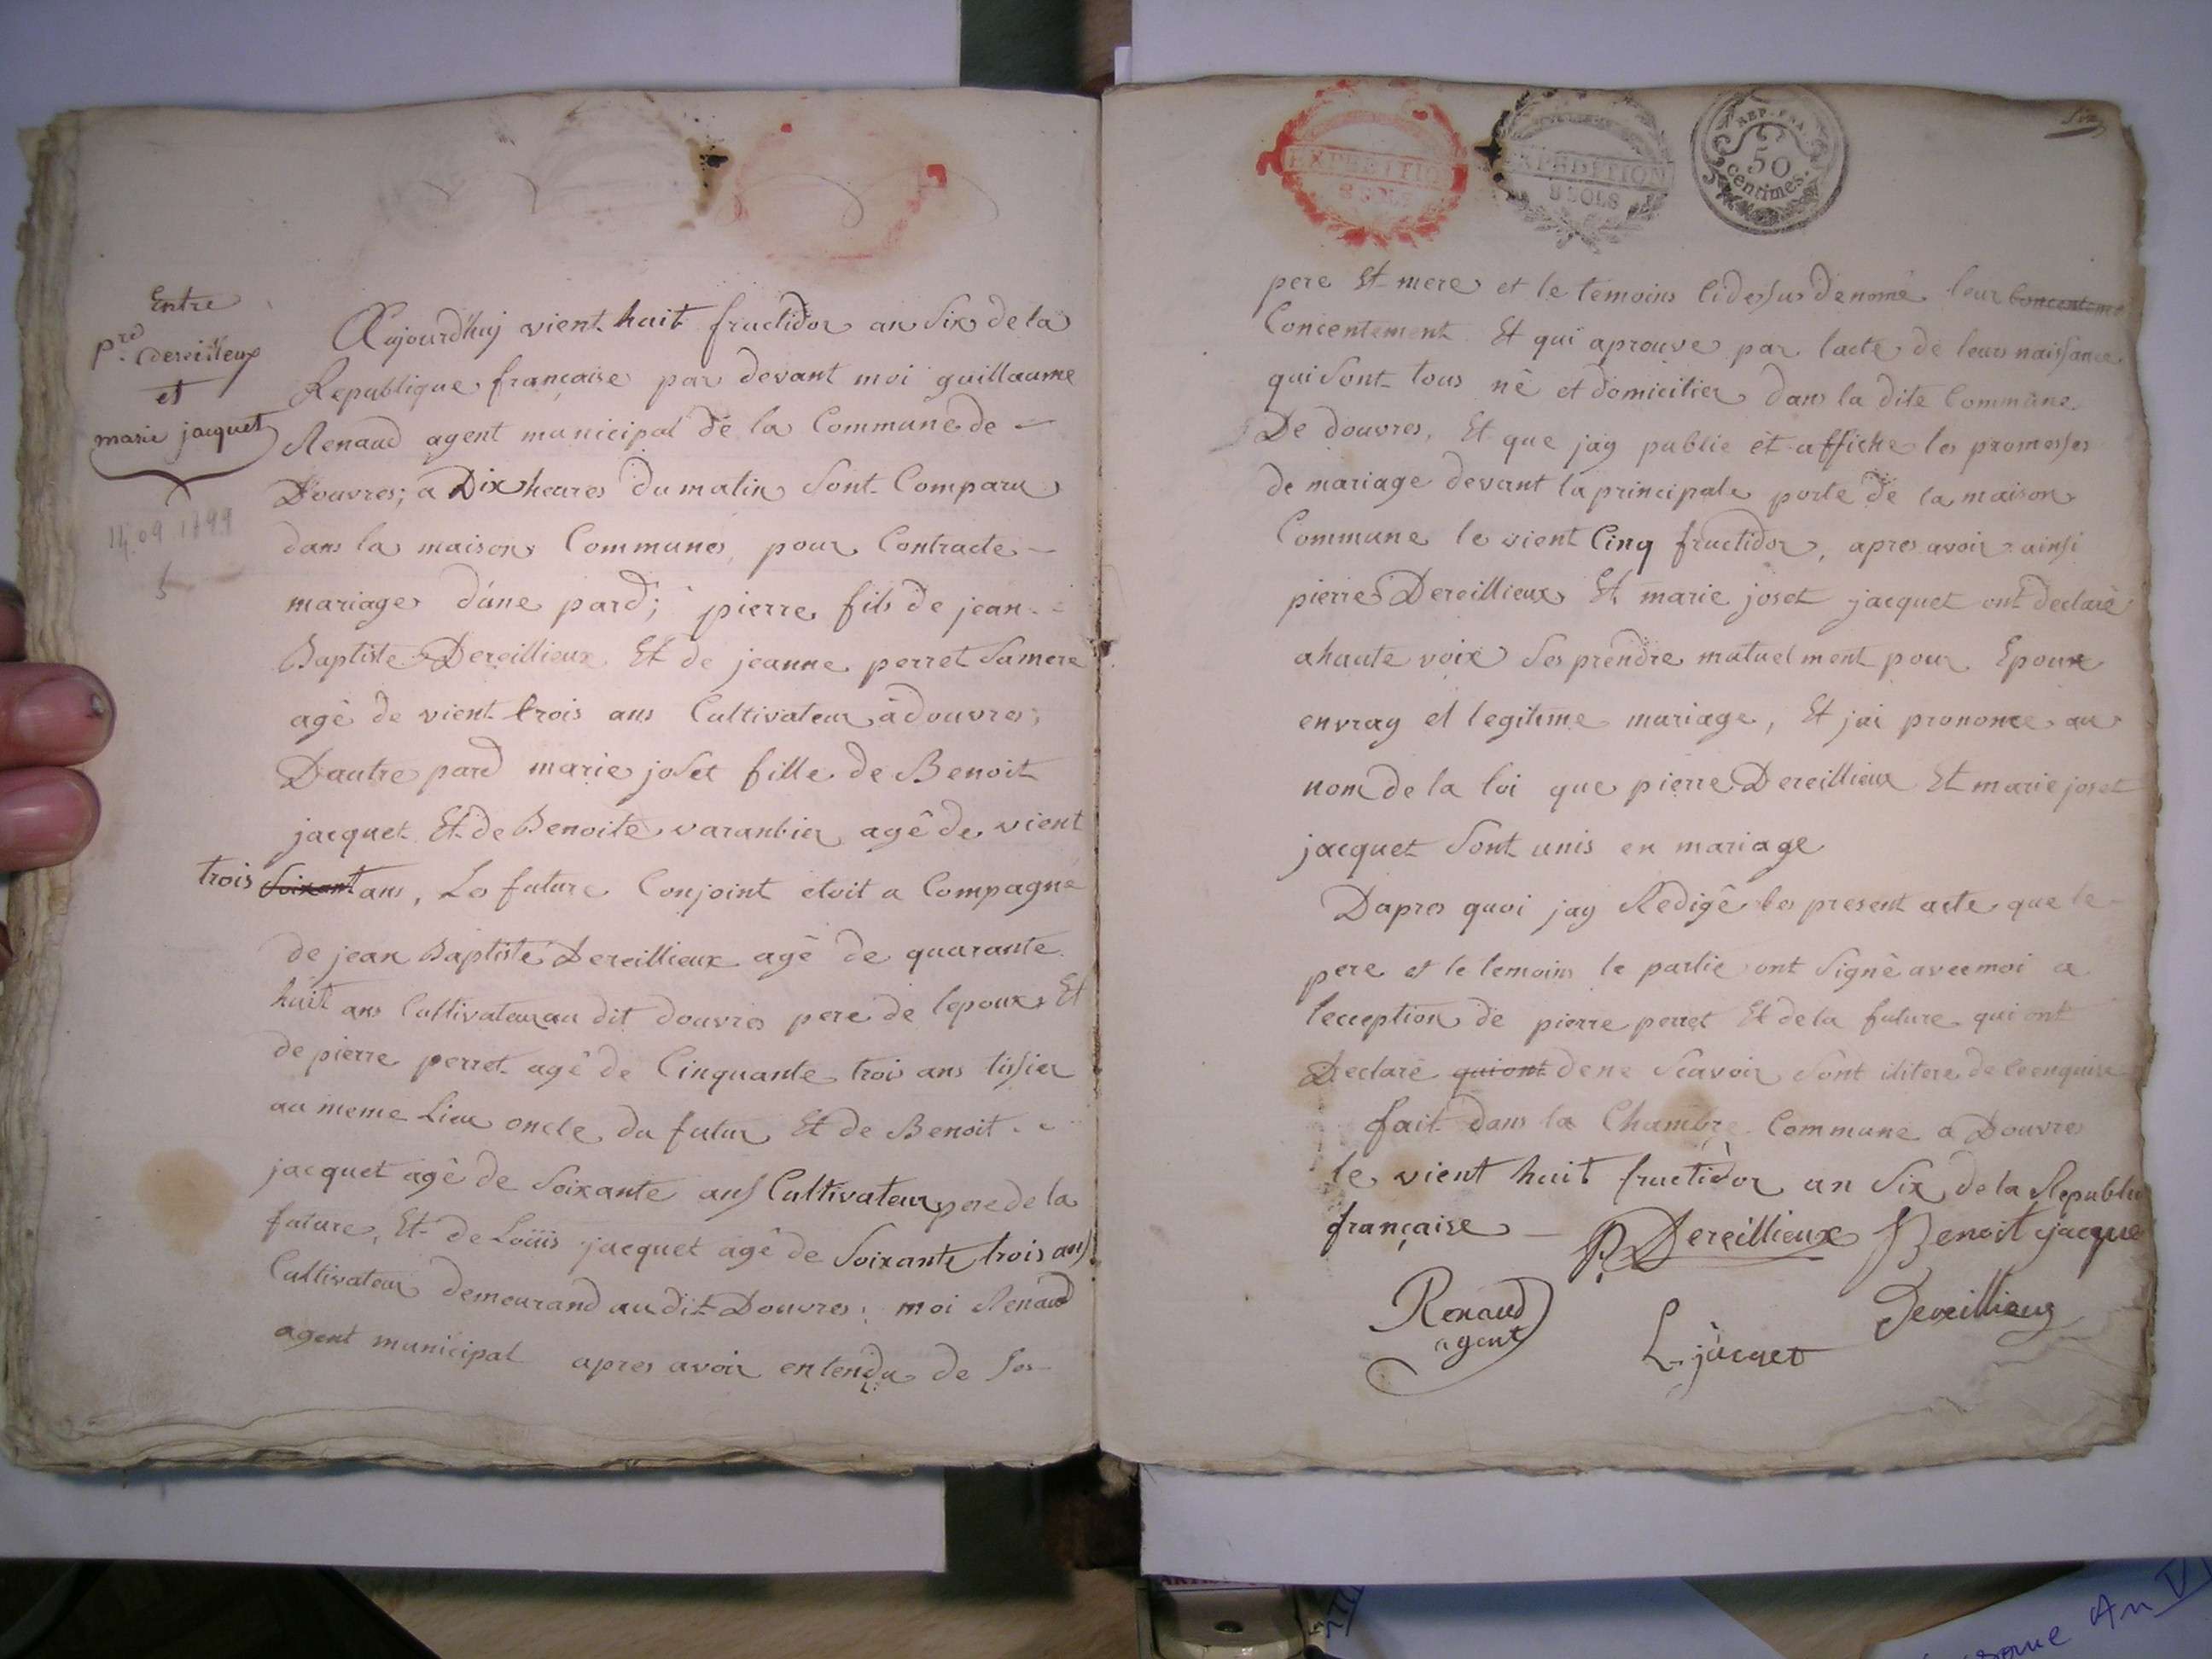 Entre
prd Dereilleux
et
marie jacquet
Aujourd'huj vient huit fructidor an Six de la
Republique française par devant moi guillaume
Renaud agent municipal de la Commune de
Douvres; a Dix heures du matin Sont Comparu
dans la maison Commune, pour Contracte
mariage d'une pard; pierre fils de jean
Baptiste Dereillieux Et de jeanne perret Samere
agé de vient trois ans Cultivateur à douvres;
D'autre pard marie joset fille de Benoit
jacquet Et de Benoite varanbier agê de vient
trois Soixant ans, Le future Conjoint etoit a Compagné
de jean Baptiste Dereillieux agé de quarante
huit ans Cultivateur au dit douvres pere de lepoux Et
de pierre perret agé de Cinquante trois ans tissier
au meme Lieu oncle du futur Et de Benoit
jacquet agé de Soixante ans Cultivateur pere de la
future, Et de Loüis jacquet agé de Soixante trois ans
Cultivateur demeurand au dit Douvres; moi Renaud
agent municipal apres avoir entendu de Ses
14.09.1799
5
EXPEDITION
8 SOLS
EXPEDITION
8 SOLS
REP. FRA.
50
centimes.
Six
pere Et mere et le temoins Cidessus denomé leur Concenteme
Concentement Et qui aprouve par lacte de leurs naissance
qui Sont tous né et domicilier dans la dite Commune
De douvres, Et que jay publié et affiche les promesses
de mariage devant la principale porte de la maison
Commune le vient Cinq fructidor, apres avoir ainsi
pierre Dereillieux Et marie joset jacquet ont declaré
ahaute voix Ses prendre mutuelment pour Epoux
envray et legitime mariage, Et jai prononce au
nom de la loi que pierre Dereillieux Et marie joset
jacquet Sont unis en mariage
Dapres quoi jay Redigé les present acte que le
pere et le temoins le partie ont Signé avec moi a
lecception de pierre perret Et de la future qui ont
Declaré qui ont dene Scavoir Sont ilitere de
fait dans la Chambre Commune a Douvres
le vient huit fructidor an Six de la Republi
française
P. Dereillieux
Benoit jacque
Renaud
agent
L. jacquet
Dereillieux
An VI